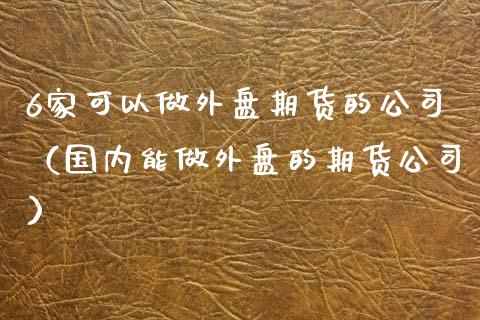 6家可以做外盘期货的公司
(国内能做外盘的期货公司
)